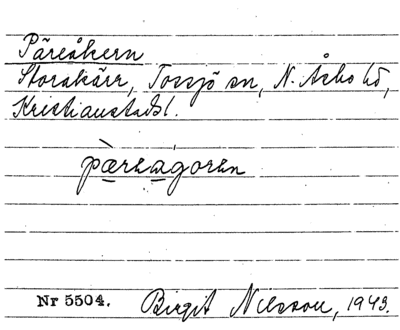 Päreåkern
Storskärr, Tossjö sn, N. Åsbo hd,
Kristianstads l.
pæ̀reagóren
Nr 5504. Birgit Nilsson, 1943.